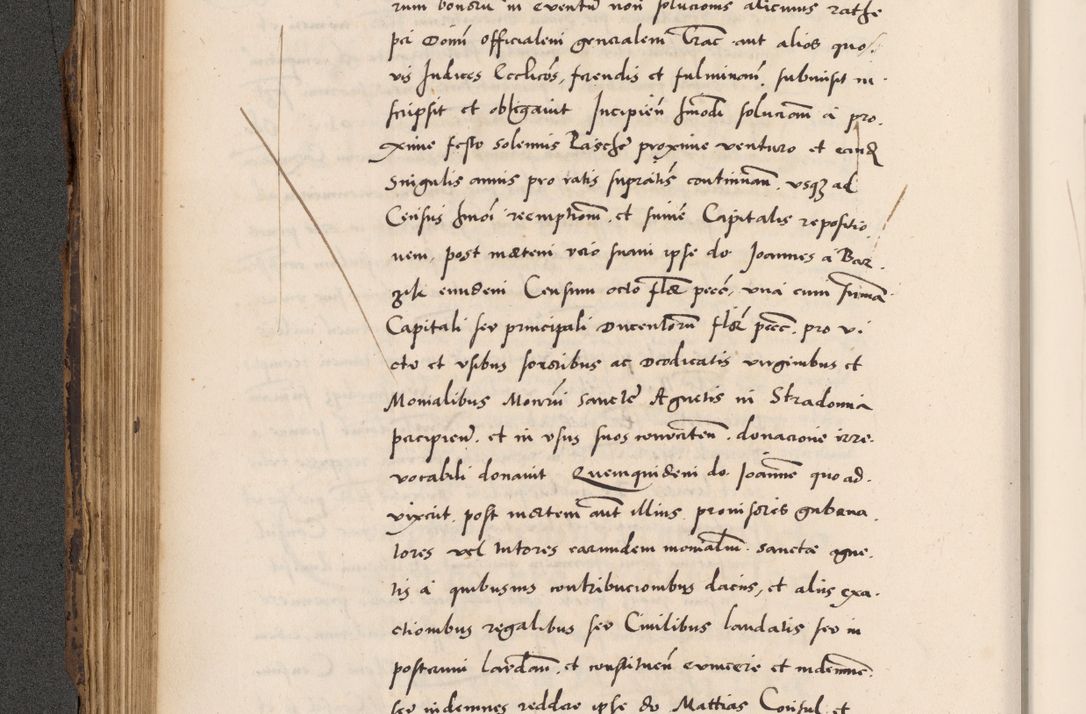 rum bonorū in eventū non solucionis alicuius rathe
pci Domī officialem generalem Crac aut alios quos
vis Iudices Ecclīcos, ferendis et fulminan̄, submisit in
scripsit et obligavit Incipien̄ hmōdi solucionī a pro
xime festo solemnis Paschē proxime venturo et eandē
Singulis annis pro ratis suprātis continuan̄, usq3 ad
Census hmōi reemptionem, et summe Capitalis repositio
nem, post mortem vero suam ipse do Joannes a Bar
zik eundem Censum octo flor pecc, una cum summa
Capitali seu principali Ducentorū flor pecc, pro vi
ctu et usibus sororibus ac Deodicatis virginibus et
Monialibus Monrii Sancte Agnetis in Stradomia
percipien̄, et in usus suos converten̄, donacione irre
vocabili donavit Quemquidem do Joannē quo ad
vixerit, post mortem aut illius provisores guberna
tores vel tutores earundem monialiū sancte Agne
tis a quibusvis contribucionibus daciis, et aliis exa
ctionibus regalibus seu Civilibus laudatis seu in
posterum laudan̄, et constituen̄ evincere et indemne
seu indemnes reddere ipse do Mattias Consul et